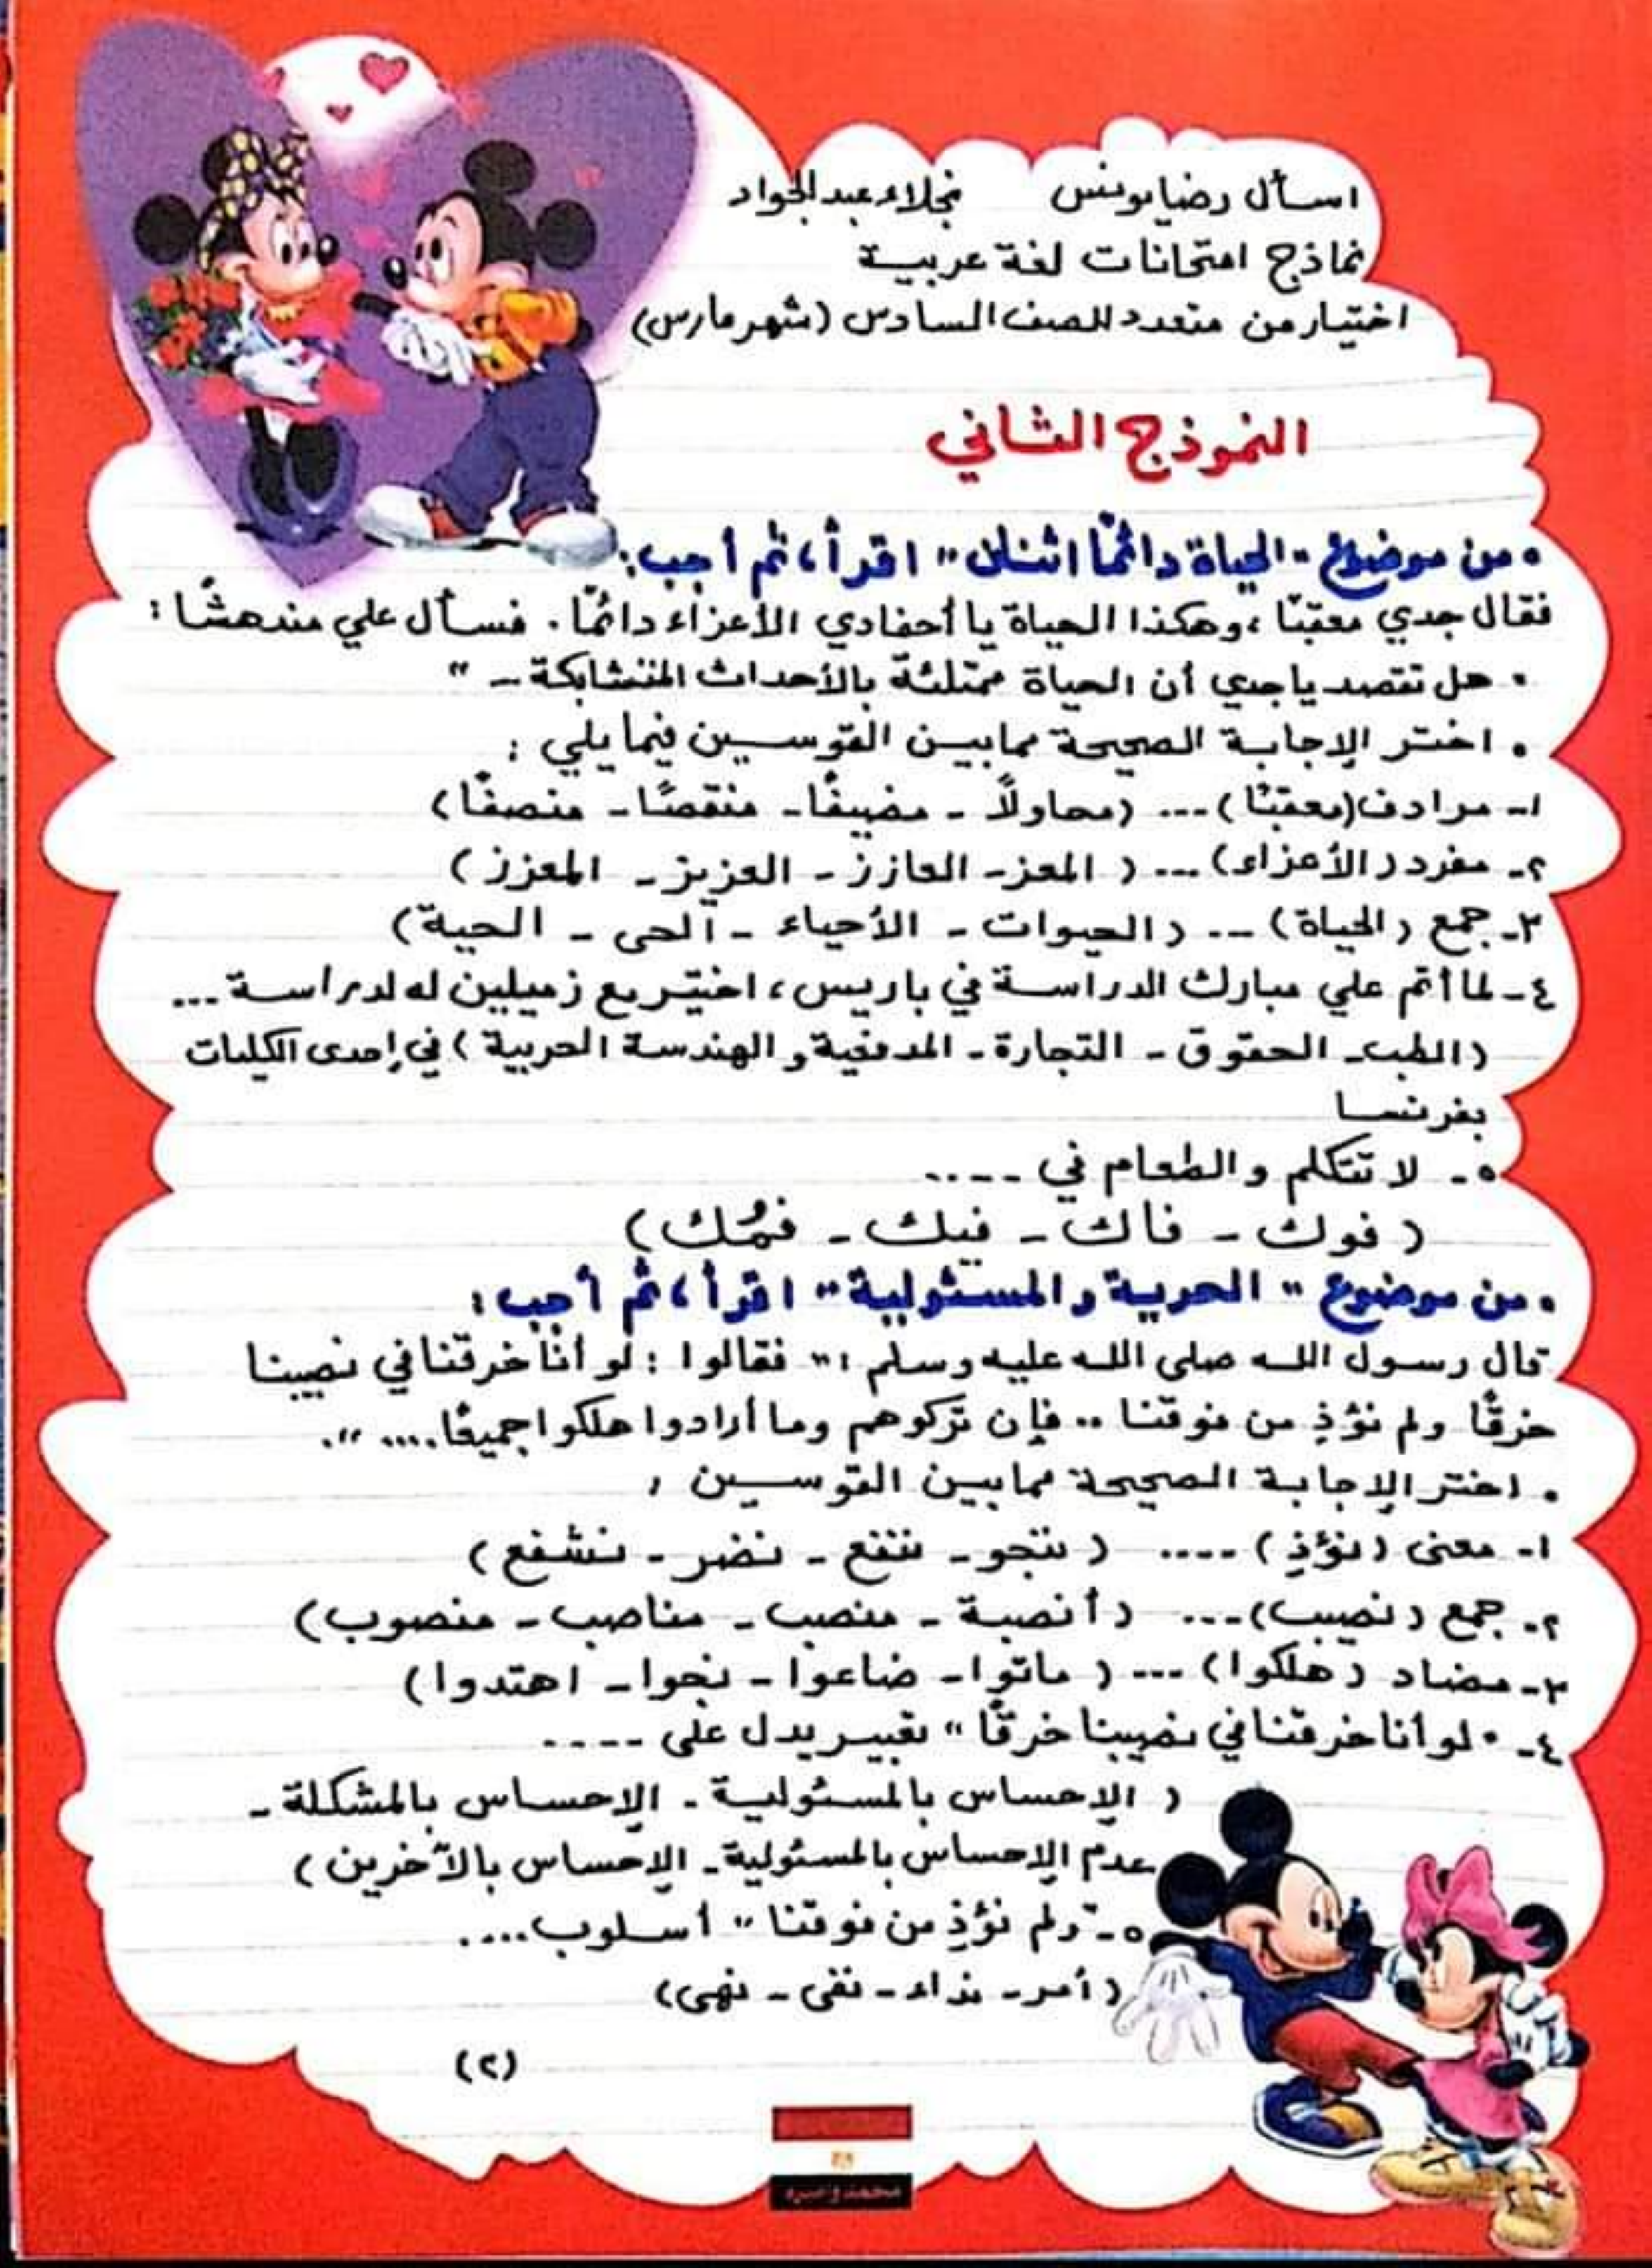 اسأل رضا يونس نجلاء عبد الجواد
نماذج امتحانات لغة عربية
اختيار من متعدد للصف السادس (شهر مارس)
النموذج الثاني
• من موضوع "الحياة دائمًا اثنان" اقرأ، ثم أجب:
فقال جدي معقبًا، وهكذا الحياة يا أحفادي الأعزاء دائمًا. فسأل علي مندهشًا:
• هل تقصد يا جدي أن الحياة ممتلئة بالأحداث المتشابكة - "
• اختر الإجابة الصحيحة مما بين القوسين فيما يلي:
١- مرادف (معقبًا) ... (محاولًا - مضيفًا - منقصًا - منصفًا)
٢- مفرد (الأعزاء) ... (المعز - العازز - العزيز - المعزز)
٣- جمع (الحياة) ... (الحيوات - الأحياء - الحى - الحية)
٤- لما أتم علي مبارك الدراسة في باريس، اختير مع زميلين له لدراسة ...
(الطب - الحقوق - التجارة - المدفعية والهندسة الحربية) في إحدى الكليات
بفرنسا
٥- لا تتكلم والطعام في ....
(فوك - فاك - فيك - فمُك)
• من موضوع "الحرية والمسئولية" اقرأ، ثم أجب:
قال رسول الله صلى الله عليه وسلم: " فقالوا: لو أنّا خرقنا في نصيبنا
خرقًا ولم نؤذِ من فوقنا .. فإن تركوهم وما أرادوا هلكوا جميعًا.... ".
• اختر الإجابة الصحيحة مما بين القوسين:
١- معنى (نؤذِ) .... (ننجو - ننفع - نضر - نشفع)
٢- جمع (نصيب) ... (أنصبة - منصب - مناصب - منصوب)
٣- مضاد (هلكوا) ... (ماتوا - ضاعوا - نجوا - اهتدوا)
٤- "لو أنا خرقنا في نصيبنا خرقًا" تعبير يدل على ....
(الإحساس بالمسئولية - الإحساس بالمشكلة -
عدم الإحساس بالمسئولية - الإحساس بالآخرين)
٥- "ولم نؤذِ من فوقنا" أسلوب ....
(أمر - نداء - نفى - نهى)
(٢)